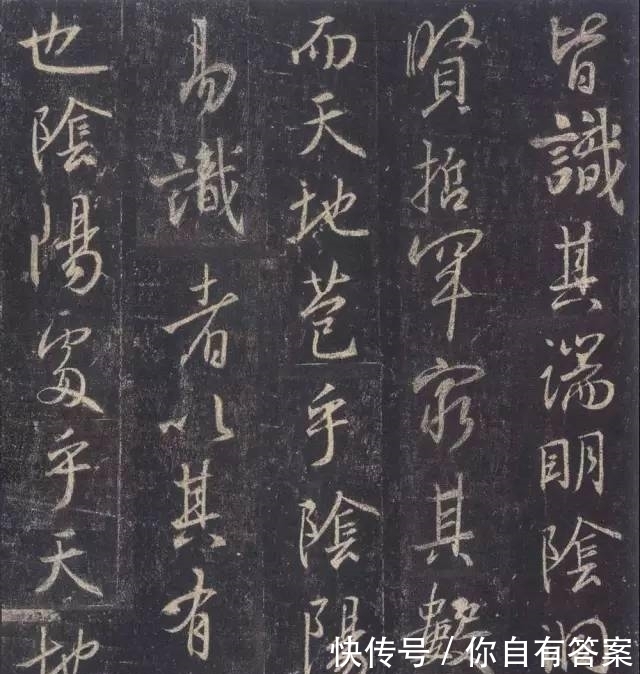 皆識其端明陰洞
賢哲罕窮其數
而天地苞乎陰陽
易識者以其有
也陰陽處乎天地
快传号/你自有答案